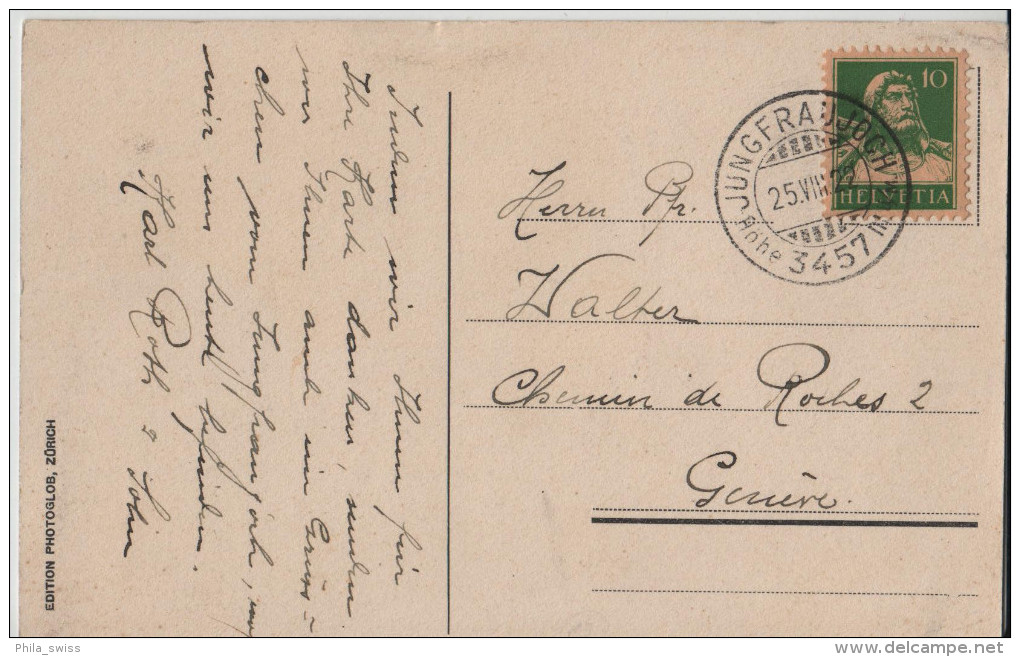 Indem wir Ihnen für
Ihre Karte danken, senden
wir Ihnen auch ein Grüss-
chen vom Jungfraujoch, wo
wir uns heute befinden.
Karl Roth & Sohn
EDITION PHOTOGLOB, ZÜRICH
10
HELVETIA
JUNGFRAUJOCH
25.VIII.
Höhe 3457 M
Herrn Pfr.
Walter
Chemin de Roches 2
Genève.
Phila_swiss
delcampe.net